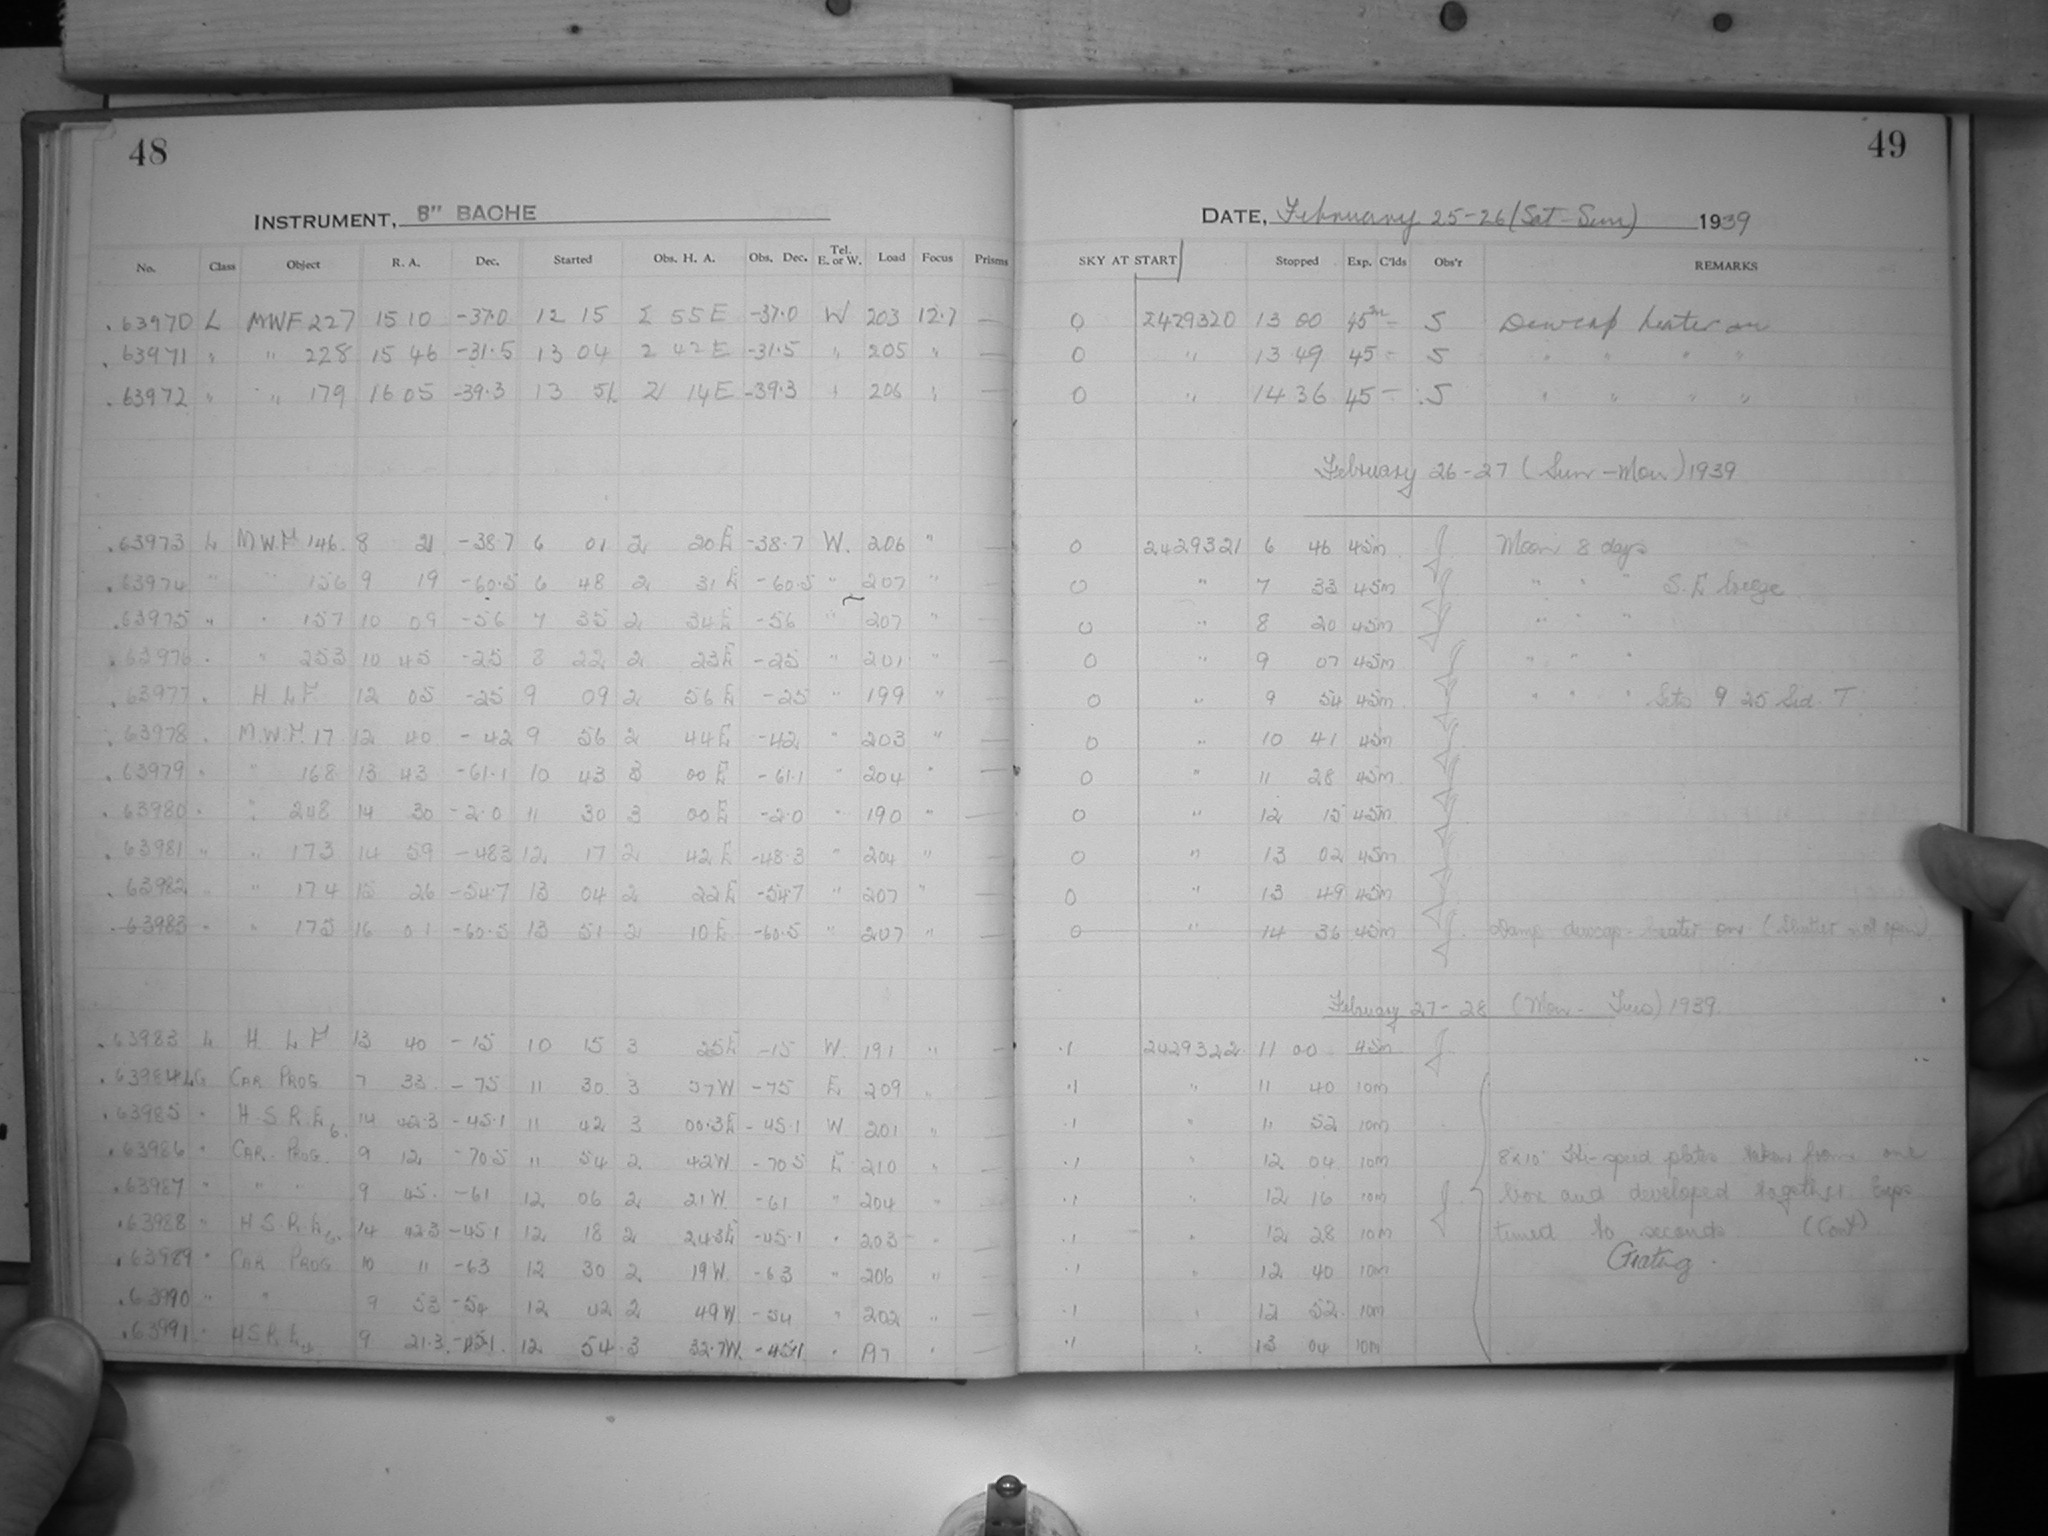 48
49
INSTRUMENT, 8" BACHE
DATE, February 25-26 (Sat-Sun) 1939
No. Class Object R. A. Dec. Started Obs. H. A. Obs. Dec. Tel. E. or W. Load Focus Prisms SKY AT START Stopped Exp. C'lds Obs'r REMARKS
.63970 L MWF 227 15 10 -37.0 12 15 2 55 E -37.0 W 203 12.7 — 0 2429320 13 00 45m — S Dewcap heater on
.63971 " " 228 15 46 -31.5 13 04 2 42 E -31.5 " 205 " — 0 " 13 49 45 — S " " " "
.63972 " " 179 16 05 -39.3 13 51 2 14 E -39.3 " 206 " — 0 " 14 36 45 — S " " " "
February 26-27 (Sun-Mon) 1939
.63973 L M.W.F 146 8 21 -38.7 6 01 2 20 E -38.7 W. 206 " — 0 2429321 6 46 45m J Moon 8 days
.63974 " " 156 9 19 -60.5 6 48 2 31 E -60.5 " 207 " — 0 " 7 33 45m J " " " S.E breeze
.63975 " " 157 10 09 -56 7 35 2 34 E -56 " 207 " — 0 " 8 20 45m J " " "
.63976 " " 253 10 45 -25 8 22 2 23 E -25 " 201 " — 0 " 9 07 45m J " " "
.63977 " H L F. 12 05 -25 9 09 2 56 E -25 " 199 " — 0 " 9 54 45m J " " " Sets 9 25 Sid. T
.63978 " M.W.F. 17 12 40 -42 9 56 2 44 E -42 " 203 " — 0 " 10 41 45m J
.63979 " " 168 13 43 -61.1 10 43 3 00 E -61.1 " 204 " — 0 " 11 28 45m J
.63980 " " 248 14 30 -2.0 11 30 3 00 E -2.0 " 190 " — 0 " 12 15 45m J
.63981 " " 173 14 59 -48.3 12 17 2 42 E -48.3 " 204 " — 0 " 13 02 45m J
.63982 " " 174 15 26 -54.7 13 04 2 22 E -54.7 " 207 " — 0 " 13 49 45m J
.63983 " " 175 16 01 -60.5 13 51 2 10 E -60.5 " 207 " — 0 " 14 36 45m J Damp dewcap heater on (Shutter not open)
February 27-28 (Mon-Tues) 1939
.63983 L H L F 13 40 -15 10 15 3 25 E -15 W. 191 " — .1 2429322 11 00 45m J
.63984 LG CAR PROG 7 33 -75 11 30 3 57 W -75 E 209 " — .1 " 11 40 10m
.63985 " H.S.R.E6. 14 42.3 -45.1 11 42 3 00.3 E -45.1 W 201 " — .1 " 11 52 10m
.63986 " CAR. PROG. 9 12 -70.5 11 54 2 42 W -70.5 E 210 " — .1 " 12 04 10m 8x10 Hi-speed plates taken from one
.63987 " " " 9 45 -61 12 06 2 21 W -61 " 204 " — .1 " 12 16 10m J box and developed together Exps
.63988 " H.S.R.E6. 14 42.3 -45.1 12 18 2 24.3 E -45.1 " 203 " — .1 " 12 28 10m timed to seconds (Cont)
.63989 " CAR PROG 10 11 -63 12 30 2 19 W -63 " 206 " — .1 " 12 40 10m Grating.
.63990 " " 9 53 -54 12 42 2 49 W -54 " 202 " — .1 " 12 52 10m
.63991 " H.S.R.E 9 21.3 -45.1 12 54 3 32.7 W. -45.1 " 197 " — .1 " 13 04 10m